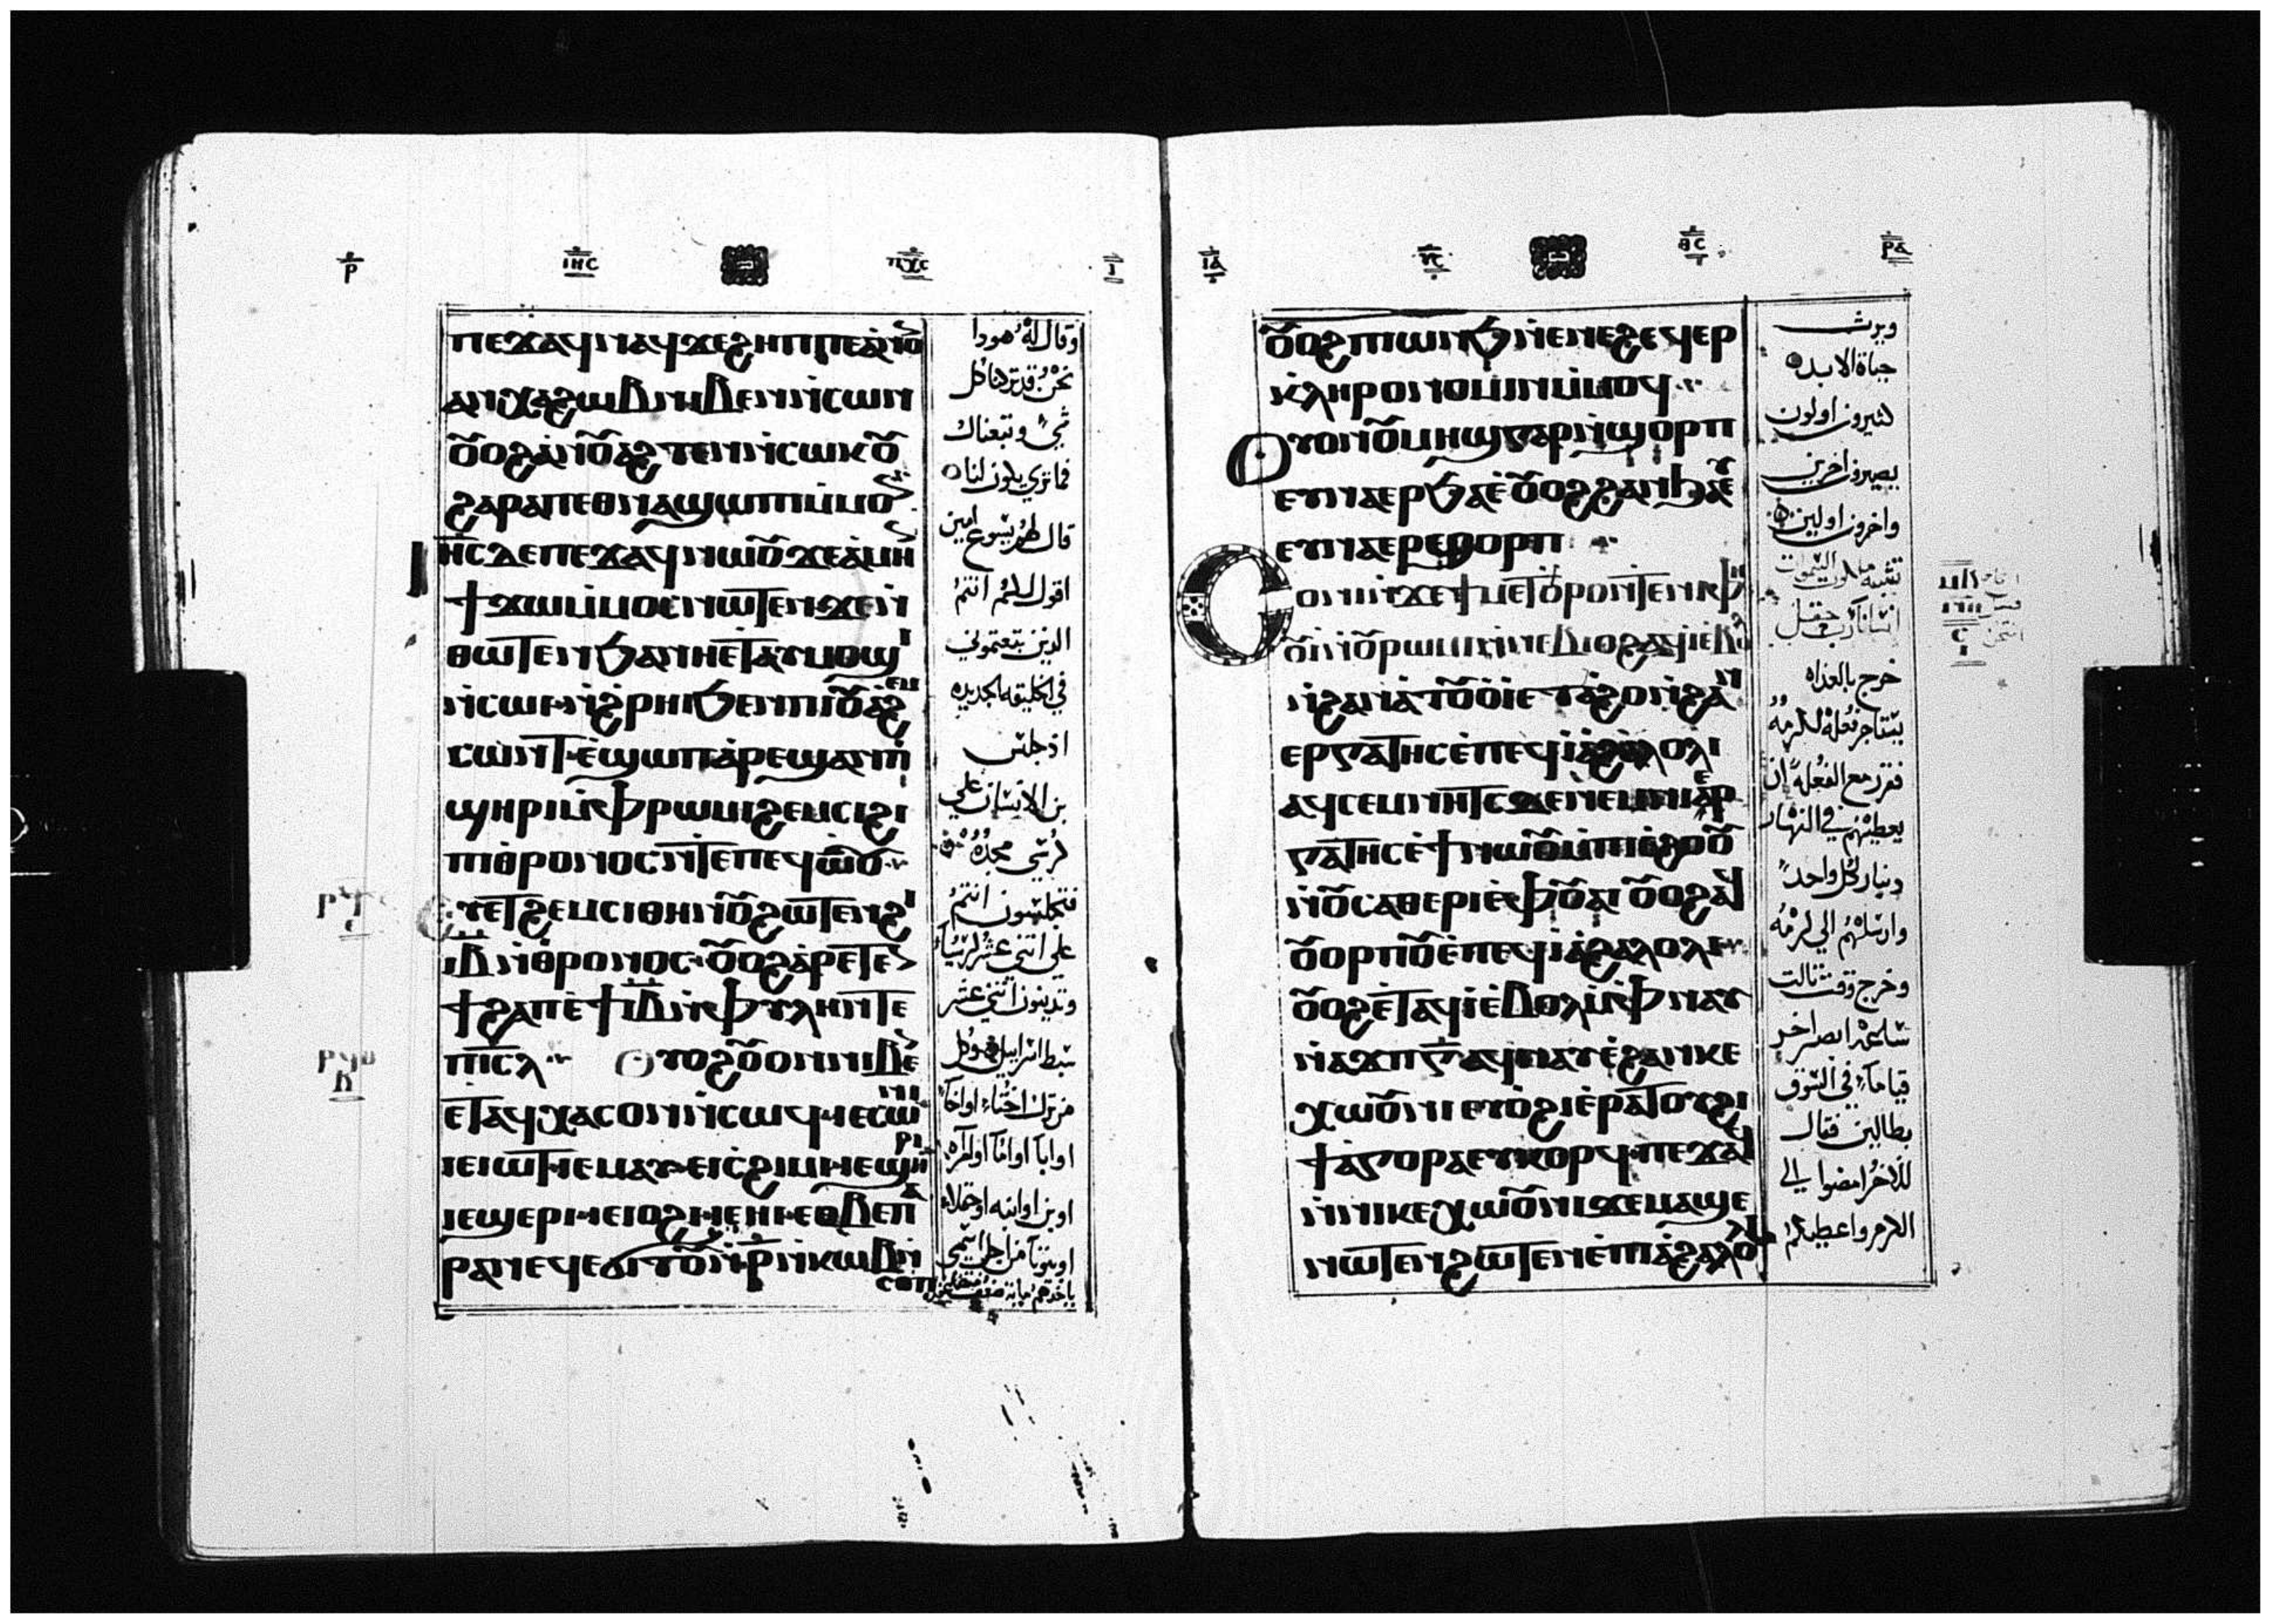 ⲣ̅ ⲓⲏⲥ ⲡⲭⲥ ⲓ̅
ⲡⲉϫⲁϥⲛⲁϥϫⲉϩⲏⲡⲡⲉⲁⲛⲟ
ⲁⲛⲭⲁϩⲱⲃⲛⲓⲃⲉⲛⲛⲥⲱⲛ
ⲟⲩⲟϩⲁⲛⲟⲩⲁϩⲧⲉⲛⲛⲥⲱⲕⲟⲩ
ϩⲁⲣⲁⲡⲉⲑⲛⲁϣⲱⲡⲓⲙⲙⲟ
ⲓⲏⲥⲇⲉⲡⲉϫⲁϥⲛⲱⲟⲩϫⲉⲁⲙⲏ
ϯϫⲱⲙⲙⲟⲥⲛⲱⲧⲉⲛϫⲉⲛ
ⲑⲱⲧⲉⲛϧⲁⲛⲏⲉⲧⲁⲩⲙⲟϣⲓ
ⲛⲥⲱⲓⲛϩⲣⲏⲓϧⲉⲛⲡⲓⲟⲩⲁϩⲉⲙ
ⲥⲱⲛⲧⲉϣⲱⲡⲁⲣⲉϣⲁⲛⲡ
ϣⲏⲣⲓⲙⲫⲣⲱⲙⲓϩⲉⲙⲥⲓϩⲓ
ⲡⲓⲑⲣⲟⲛⲟⲥⲛⲧⲉⲡⲉϥⲱⲟⲩ
ⲉⲣⲉⲧⲉⲛϩⲉⲙⲥⲓⲑⲏⲛⲟⲩϩⲱⲧⲉⲛϩⲓ
ⲓⲃ̅ⲛⲑⲣⲟⲛⲟⲥⲟⲩⲟϩⲁⲣⲉⲧⲉ
ϯϩⲁⲡⲉϯⲓⲃ̅ⲙⲫⲩⲗⲏⲛⲧⲉ
ⲡⲓⲥⲗ ⲟⲩⲟϩⲟⲩⲟⲛⲛⲓⲃⲉ
ⲉⲧⲁϥⲭⲁⲥⲟⲛⲛⲥⲱϥⲓⲉⲥⲱⲛⲓ
ⲓⲉⲓⲱⲧⲓⲉⲙⲁⲩⲓⲉⲓⲥϩⲓⲙⲓⲉϣⲏⲣⲓ
ⲓⲉϣⲉⲣⲓⲓⲉⲓⲟϩⲓⲓⲉⲏⲓⲉⲑⲃⲉⲡⲁ
ⲣⲁⲛⲉϥⲉϭⲓⲧⲟⲩⲛⲣ̅ⲛⲕⲱⲃⲛ
ⲥⲟⲡ
وقال له هودا
نحن قد تركنا كل
شي وتبعناك
فماتري يكون لنا
قال لهم يسوع امين
اقول لكم انتم
الذين تبعتموني
في الخليقه الجديده
اذ جلس
بن الانسان علي
كرسي مجده
فتجلسون انتم
علي اثني عشر كرسيا
وتدينون اثني عشر
سبط اسراييل وكل
من ترك اختا اواخا
اوابا اواما اوامراه
اوبن اوابنه اوحقلا
اوبيوتا من اجل اسمي
ⲓⲁ̅ ⲩⲥ ⲑⲥ ⲣⲁ̅
ⲟⲩⲟϩⲡⲓⲱⲛϧⲛⲉⲛⲉϩⲉϥⲉⲣ
ⲕⲗⲏⲣⲟⲛⲟⲙⲓⲛⲙⲙⲟϥ
ⲟⲩⲟⲛⲟⲩⲙⲏϣⲅⲁⲣⲛϣⲟⲣⲡ
ⲉⲩⲛⲁⲉⲣϧⲁⲉⲟⲩⲟϩϩⲁⲛϧⲁⲉⲩ
ⲉⲩⲛⲁⲉⲣϣⲟⲣⲡ
ⲥⲟⲛⲓⲛϫⲉϯⲙⲉⲧⲟⲩⲣⲟⲛⲧⲉⲛⲓⲫⲏ
ⲟⲩⲓⲛⲟⲩⲣⲱⲙⲓⲛⲛⲉⲃⲓⲟϩⲁϥⲓⲉⲃⲟ
ⲛϩⲁⲛⲁⲧⲟⲟⲩⲓⲉⲑⲁϩⲟⲛϩⲁⲛ
ⲉⲣⲅⲁⲧⲏⲥⲉⲡⲉϥⲓⲁϩⲁⲗⲟⲗⲓ
ⲁϥⲥⲉⲙⲛⲏⲧⲥⲇⲉⲛⲉⲙⲛⲓⲉⲣ
ⲅⲁⲧⲏⲥⲉϯⲛⲱⲟⲩⲙⲡⲓⲉϩⲟⲟⲩ
ⲛⲟⲩⲥⲁⲑⲉⲣⲓⲉⲫⲟⲩⲁⲓⲟⲩⲟϩⲁϥ
ⲟⲩⲟⲣⲡⲟⲩⲉⲡⲉϥⲓⲁϩⲁⲗⲟⲗⲓ
ⲟⲩⲟϩⲉⲧⲁϥⲓⲉⲃⲟⲗⲙⲫⲛⲁⲩ
ⲛⲁϫⲡⲅ̅ⲁϥⲛⲁⲩⲉϩⲁⲛⲕⲉ
ⲭⲱⲟⲩⲛⲓⲉⲩⲟϩⲓⲉⲣⲁⲧⲟⲩϩⲓ
ϯⲁⲅⲟⲣⲁⲉⲩⲕⲟⲣϥⲡⲉϫⲁϥ
ⲛⲛⲓⲕⲉⲭⲱⲟⲩⲛⲓϫⲉⲙⲁϣⲉ
ⲛⲱⲧⲉⲛϩⲱⲧⲉⲛⲉⲡⲓⲁϩⲁⲗⲟⲗⲓ
ويرث
حياة الابده
كثيرون اولون
يصيرون اخرين
واخرون اولين
تشبه ملكوت السموات
انسانا رب حقل
خرج بالغداه
يستاجر فعله لكرمه
فقرر مع الفعله ان
يعطيهم في النهار
دينار كل واحد
وارسلهم الي كرمه
وخرج وقت ثالث
ساعه ابصر اخر
قياما في السوق
بطالين فقال
للاخر امضوا الي
الكرم واعطيكم